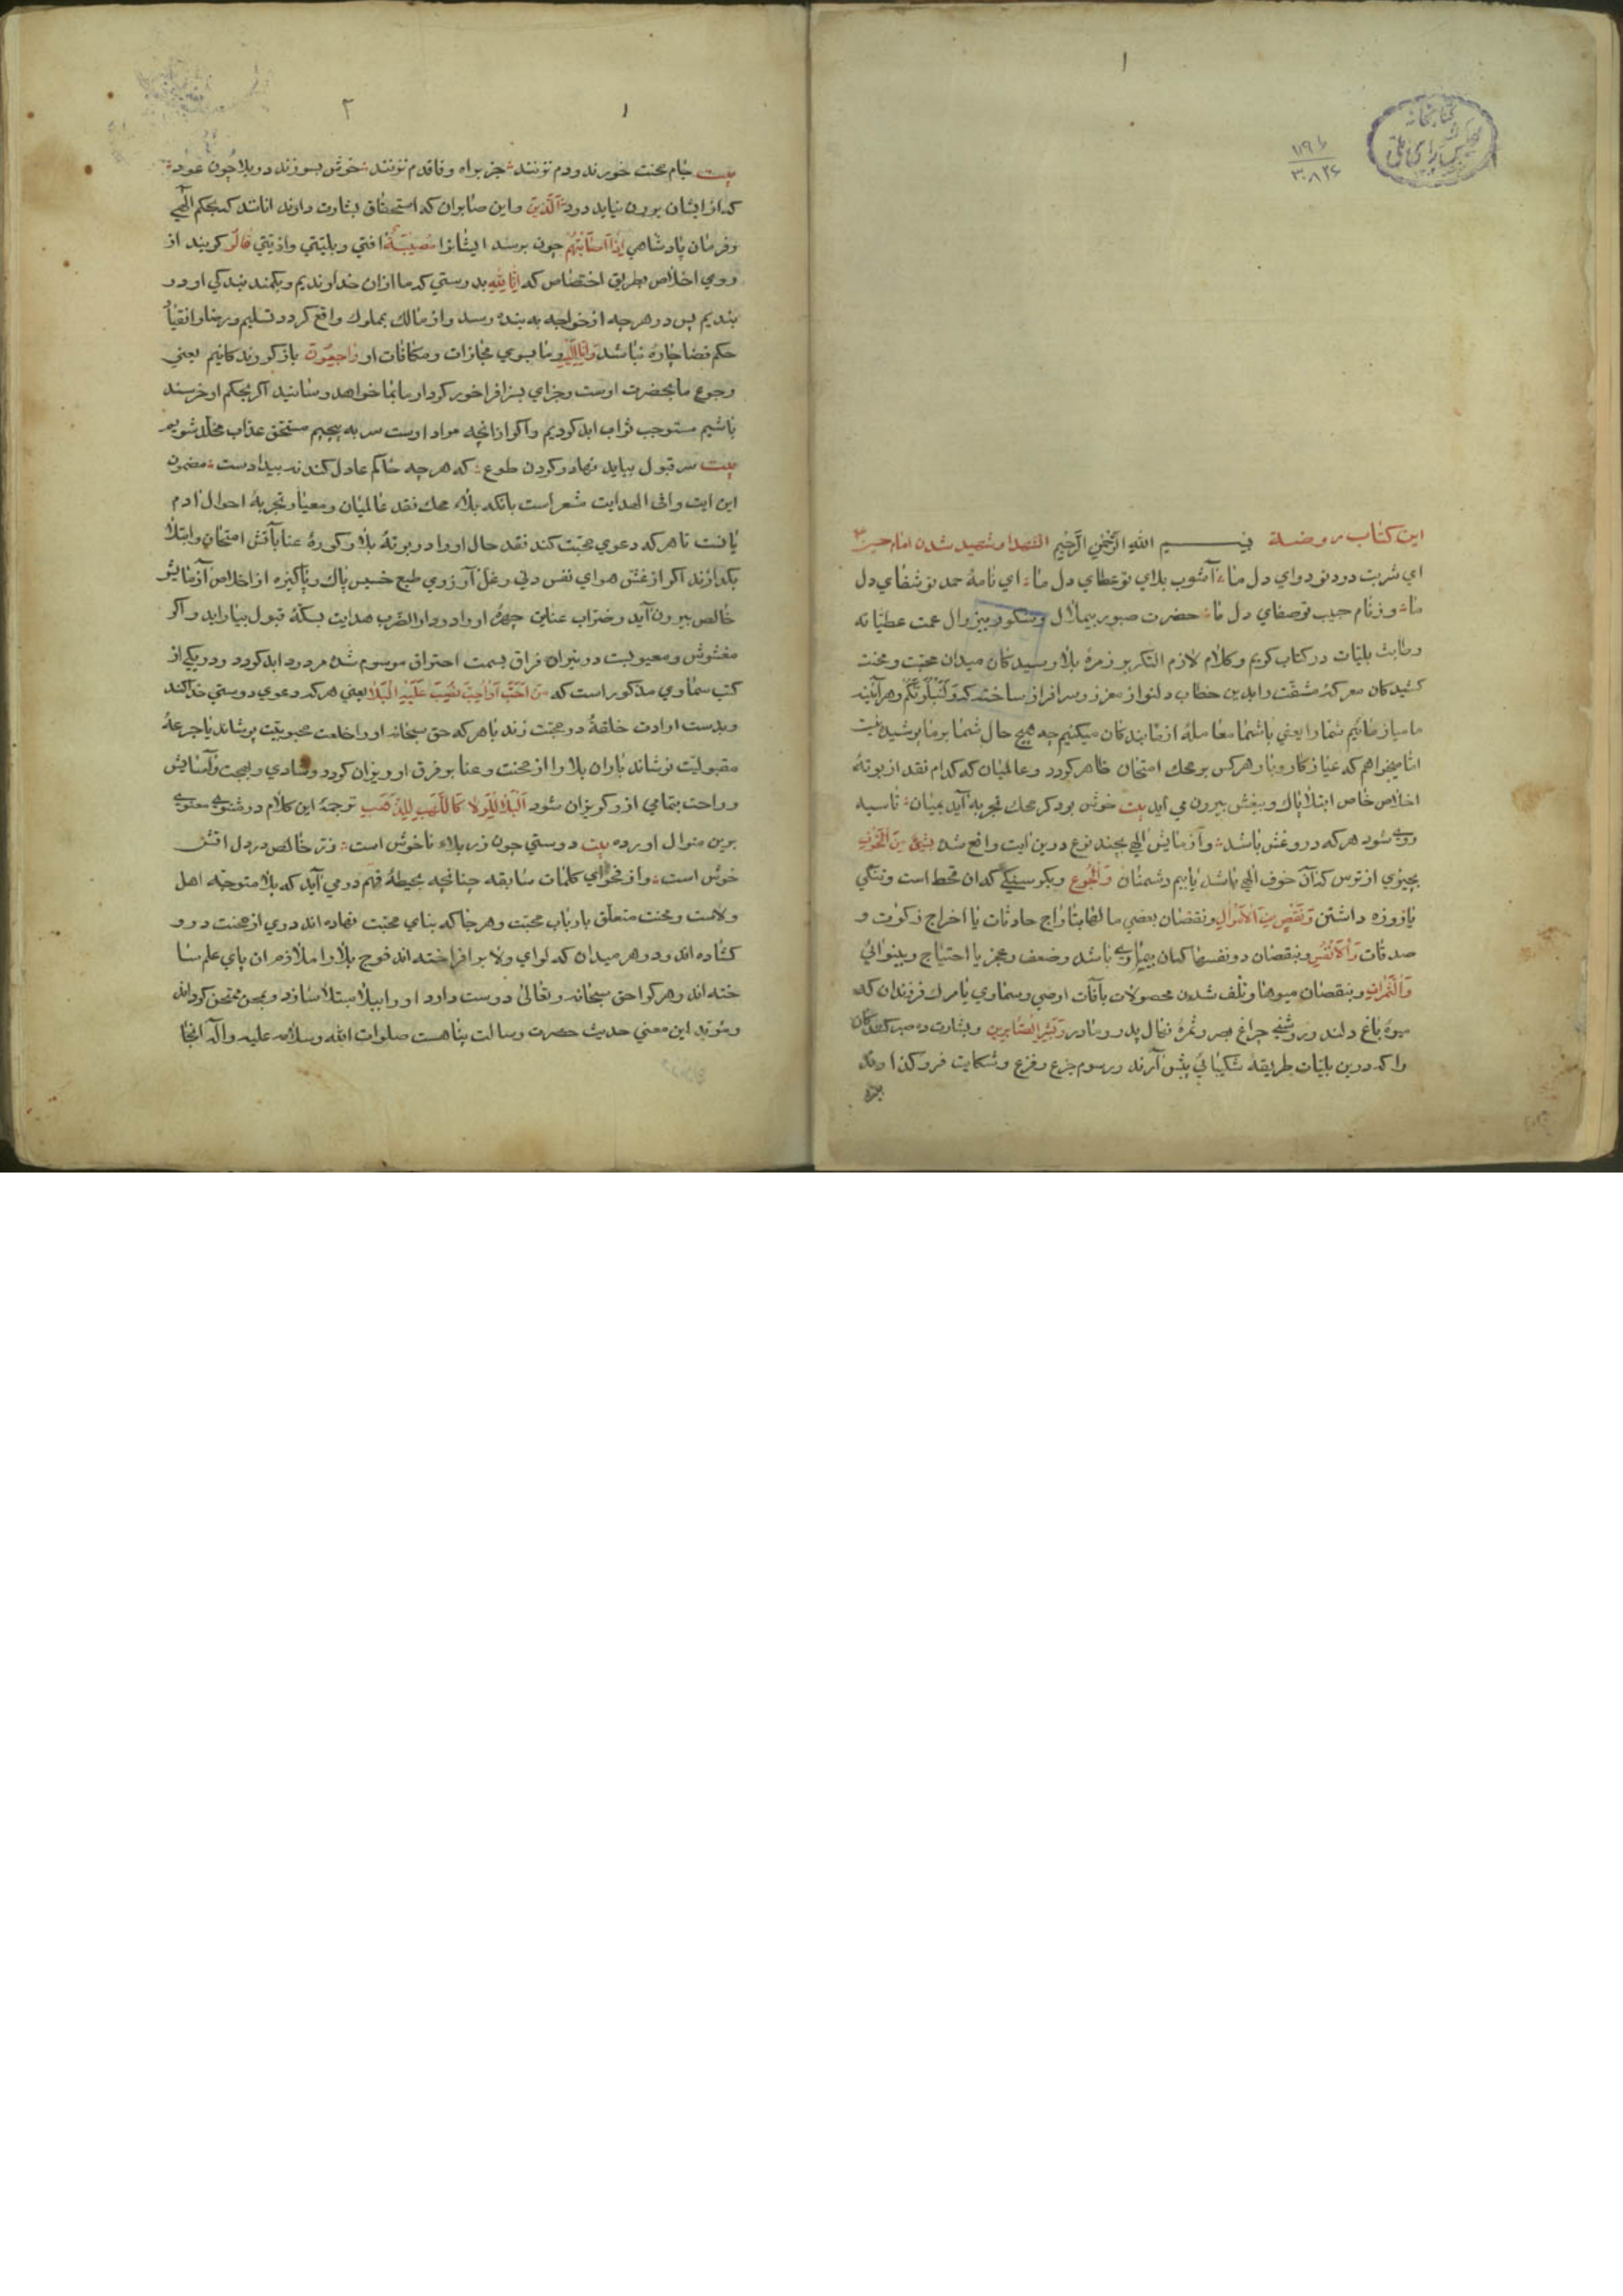 ۱
کتابخانه
مجلس شورای ملی
۳۰۸۲۶
این کتاب روضة بسم الله الرحمن الرحیم الشهدا و شهید شدن امام حسین
ای شربت درد تو دوای دل ما آشوب بلای تو عطای دل ما ای نامهٔ حمد تو شفای دل
ما وز نام حبیب تو صفای دل ما حضرت صبور بیملال و شکور بیزوال عمت عطیاته
و طابت بلیات در کتاب کریم و کلام لازم التکریر زمرهٔ بلا رسیدکان میدان محبت و محنت
کشیدکان معرکهٔ مشقت را بدین خطاب دلنواز معزز و سرافراز ساخته که ولنبلونکم و هر آینه
ما میازمائیم شما را یعنی با شما معاملهٔ ازمایندکان میکنیم چه هیچ حال شما بر ما پوشیده نیست
اما میخواهم که عیار کار و بار هر کس بر محک امتحان ظاهر کردد و عالمیان که کدام نقد از بوتهٔ
اخلاص خاص ابتلا پاک و بیغش بیرون می اید بیت خوش بود کر محک تجربه آید بمیان تا سیه
روی شود هر که در و غش باشد و آزمایش الهی بچند نوع درین ایت واقع شده بشیء من الخوف
بچیزی از ترس که آن خوف الهی باشد یا بیم دشمنان والجوع و بکرسنکی که ان قحط است و تنکی
یا روزه داشتن ونقص من الاموال و نقصان بعضی مالها بتاراج حادثات یا اخراج زکوت و
صدقات والانفس و بنقصان در نفسها که ان بیماری باشد و ضعف و عجز یا احتیاج و بینوائی
والثمرات و بنقصان میوها و تلف شدن محصولات بآفات ارضی و سماوی یا مرک فرزندان که
میوهٔ باغ دلند و روشنی چراغ بصر و ثمرهٔ نهال پدر و مادر وبشر الصابرین و بشارت ده صبر کنندکان
را که درین بلیات طریقهٔ شکیبائی پیش آرند و رسوم جزع و فزع و شکایت فرو کذارند
۱
۲
بیت جام محنت خورند و دم نزنند جز براه وفا قدم نزنند خوش بسوزند در بلا چون عود
که از ایشان برون نیاید دود الذین و این صابران که استحقاق بشارت دارند انانند که بحکم الهی
و فرمان پادشاهی اذا اصابتهم چون برسد ایشانرا مصیبة افتی و بلیتی و اذیتی قالوا کویند از
روی اخلاص بطریق اختصاص که انا لله بدرستی که ما ازان خداوندیم و بکمند بندکی او در
بندیم پس در هر چه از خواجه به بنده رسد و از مالک بملوک واقع کردد تسلیم و رضا و انقیاد
حکم قضا چاره نباشد وانا الیه و ما بسوی مجازات و مکافات او راجعون باز کردندکانیم یعنی
رجوع ما بحضرت اوست و جزای بسزا فراخور کردار ما بما خواهد رسانید اکر بحکم او خرسند
باشیم مستوجب ثواب ابد کردیم و اکر ازانچه مراد اوست سر به پیچیم مستحق عذاب مخلد شویم
بیت سر قبول بباید نهاد و کردن طوع که هر چه حاکم عادل کند نه بیداد است مضمون
این ایت وافی الهدایت مشعر است بانکه بلاء محک نقد عالمیان و معیار تجربهٔ احوال ادم
یانست تا هر که دعوی محبت کند نقد حال او را در بوتهٔ بلا و کورهٔ عنا بآتش امتحان و ابتلا
بکدازند اکر از غش هوای نفس دنی و غل آرزوی طبع خسیس پاک و پاکیزه از اخلاص آزمایش
خالص بیرون آید و ضراب عنایت چهرهٔ او را در دار الضرب هدایت بسکهٔ قبول بیاراید و اکر
مغشوش و معیوبست در نیران فراق بسمت احتراق موسوم شده مردود ابد کردد و در یکی از
کتب سماوی مذکور است که من احب او احب نصیب علیه البلا یعنی هر که دعوی دوستی خدا کند
و بدست ارادت حلقهٔ در محبت زند یا هر که حق سبحانه او را خلعت محبوبیت پوشاند یا جرعهٔ
مقبولیت نوشاند باران بلا را از محنت و عنا بر فرق او ریزان کردد و شادی و بهجت و آسایش
و راحت بتمامی ازو کریزان شود البلاء للولا کاللهب للذهب ترجمهٔ این کلام در مثنوی معنوی
برین منوال اورده بیت دوستی چون زر بلاء ناخوش است زر خالص در دل اتش
خوش است و از فحوای کلمات سابقه چنانچه بحیطهٔ فهم در می آید که بلا متوجه اهل
ولاست و محنت متعلق بارباب محبت و هر جا که بنای محبت نهاده اند دری از محنت درو
کشاده اند و در هر میدان که لوای ولا بر افراخته اند فوج بلا را ملازم ان پای علم سا
خته اند و هر کرا حق سبحانه و تعالی دوست دارد او را ببلا مبتلا سازد و بمحن ممتحن کرداند
و مؤید این معنی حدیث حضرت رسالت پناهست صلوات الله و سلامه علیه و آله انجا